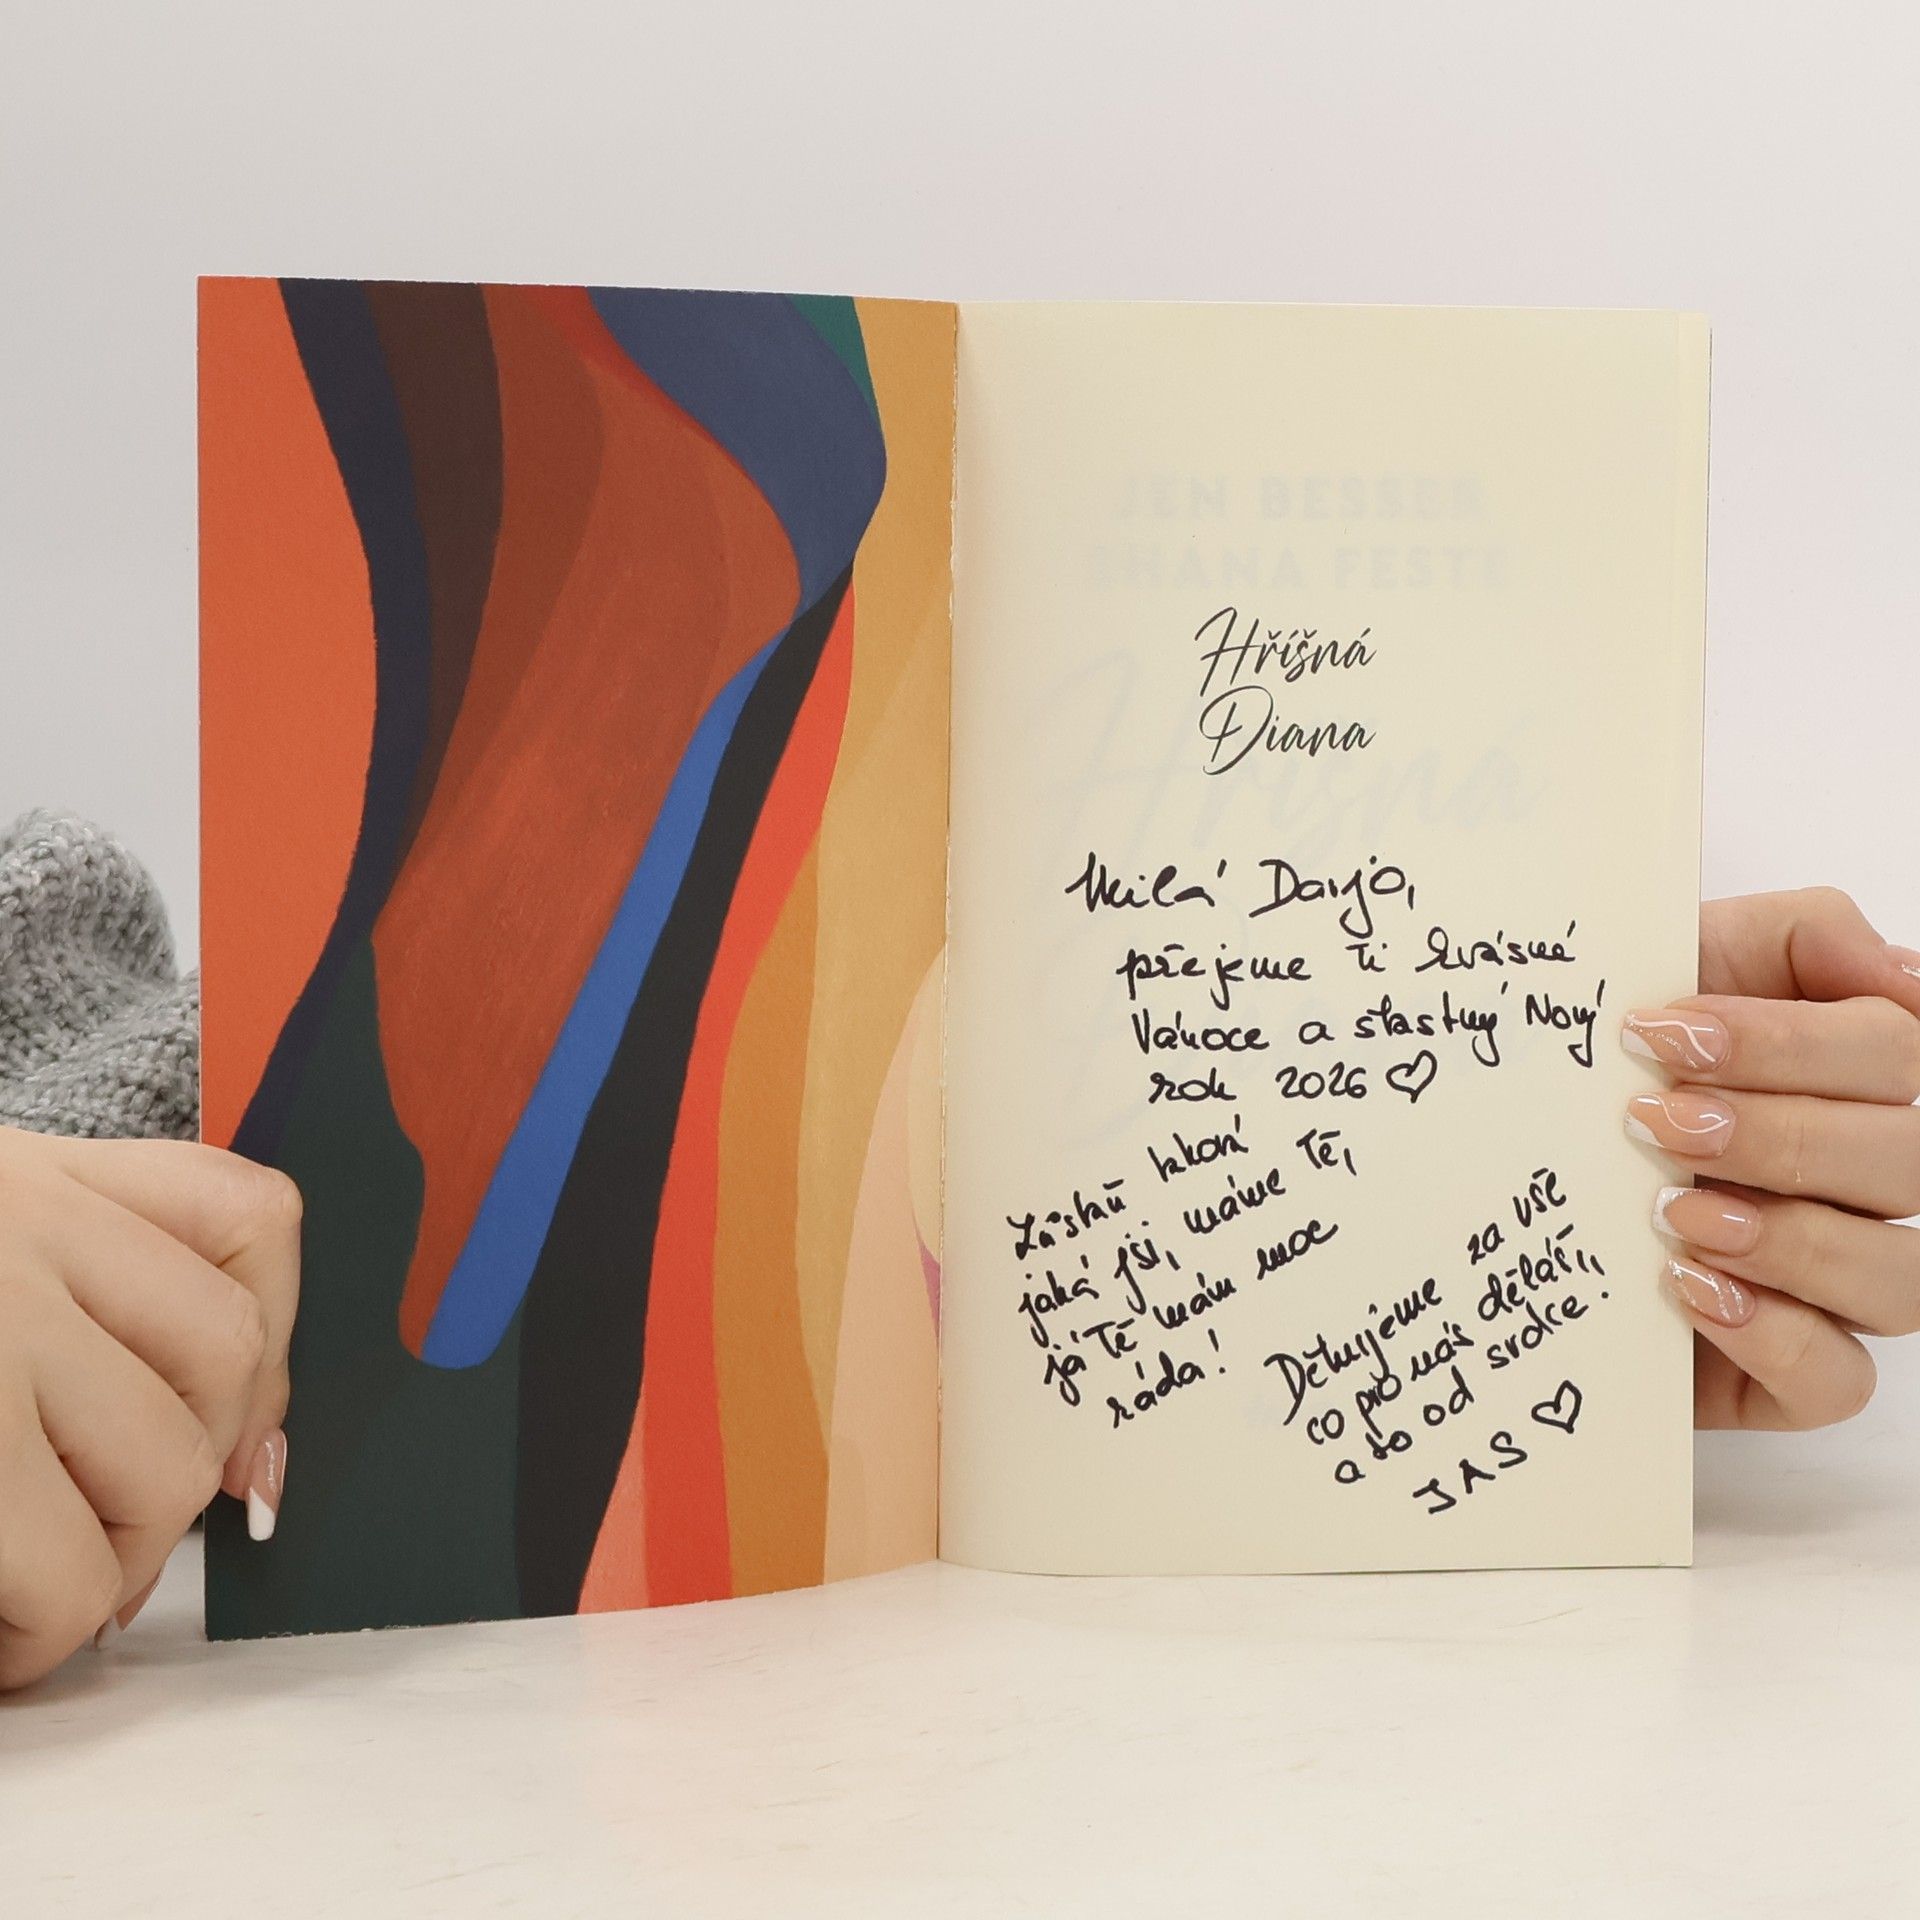 JEN BESSER
SHANA FESTE
Hříšná
Diana
Milá Darjo,
přejeme Ti krásné
Vánoce a šťastný Nový
rok 2026 ♡
Zůstaň taková
jaká jsi, máme Tě,
já Tě mám moc
ráda!
Děkujeme za vše
co pro nás děláš,,
a to od srdce!
JAS ♡